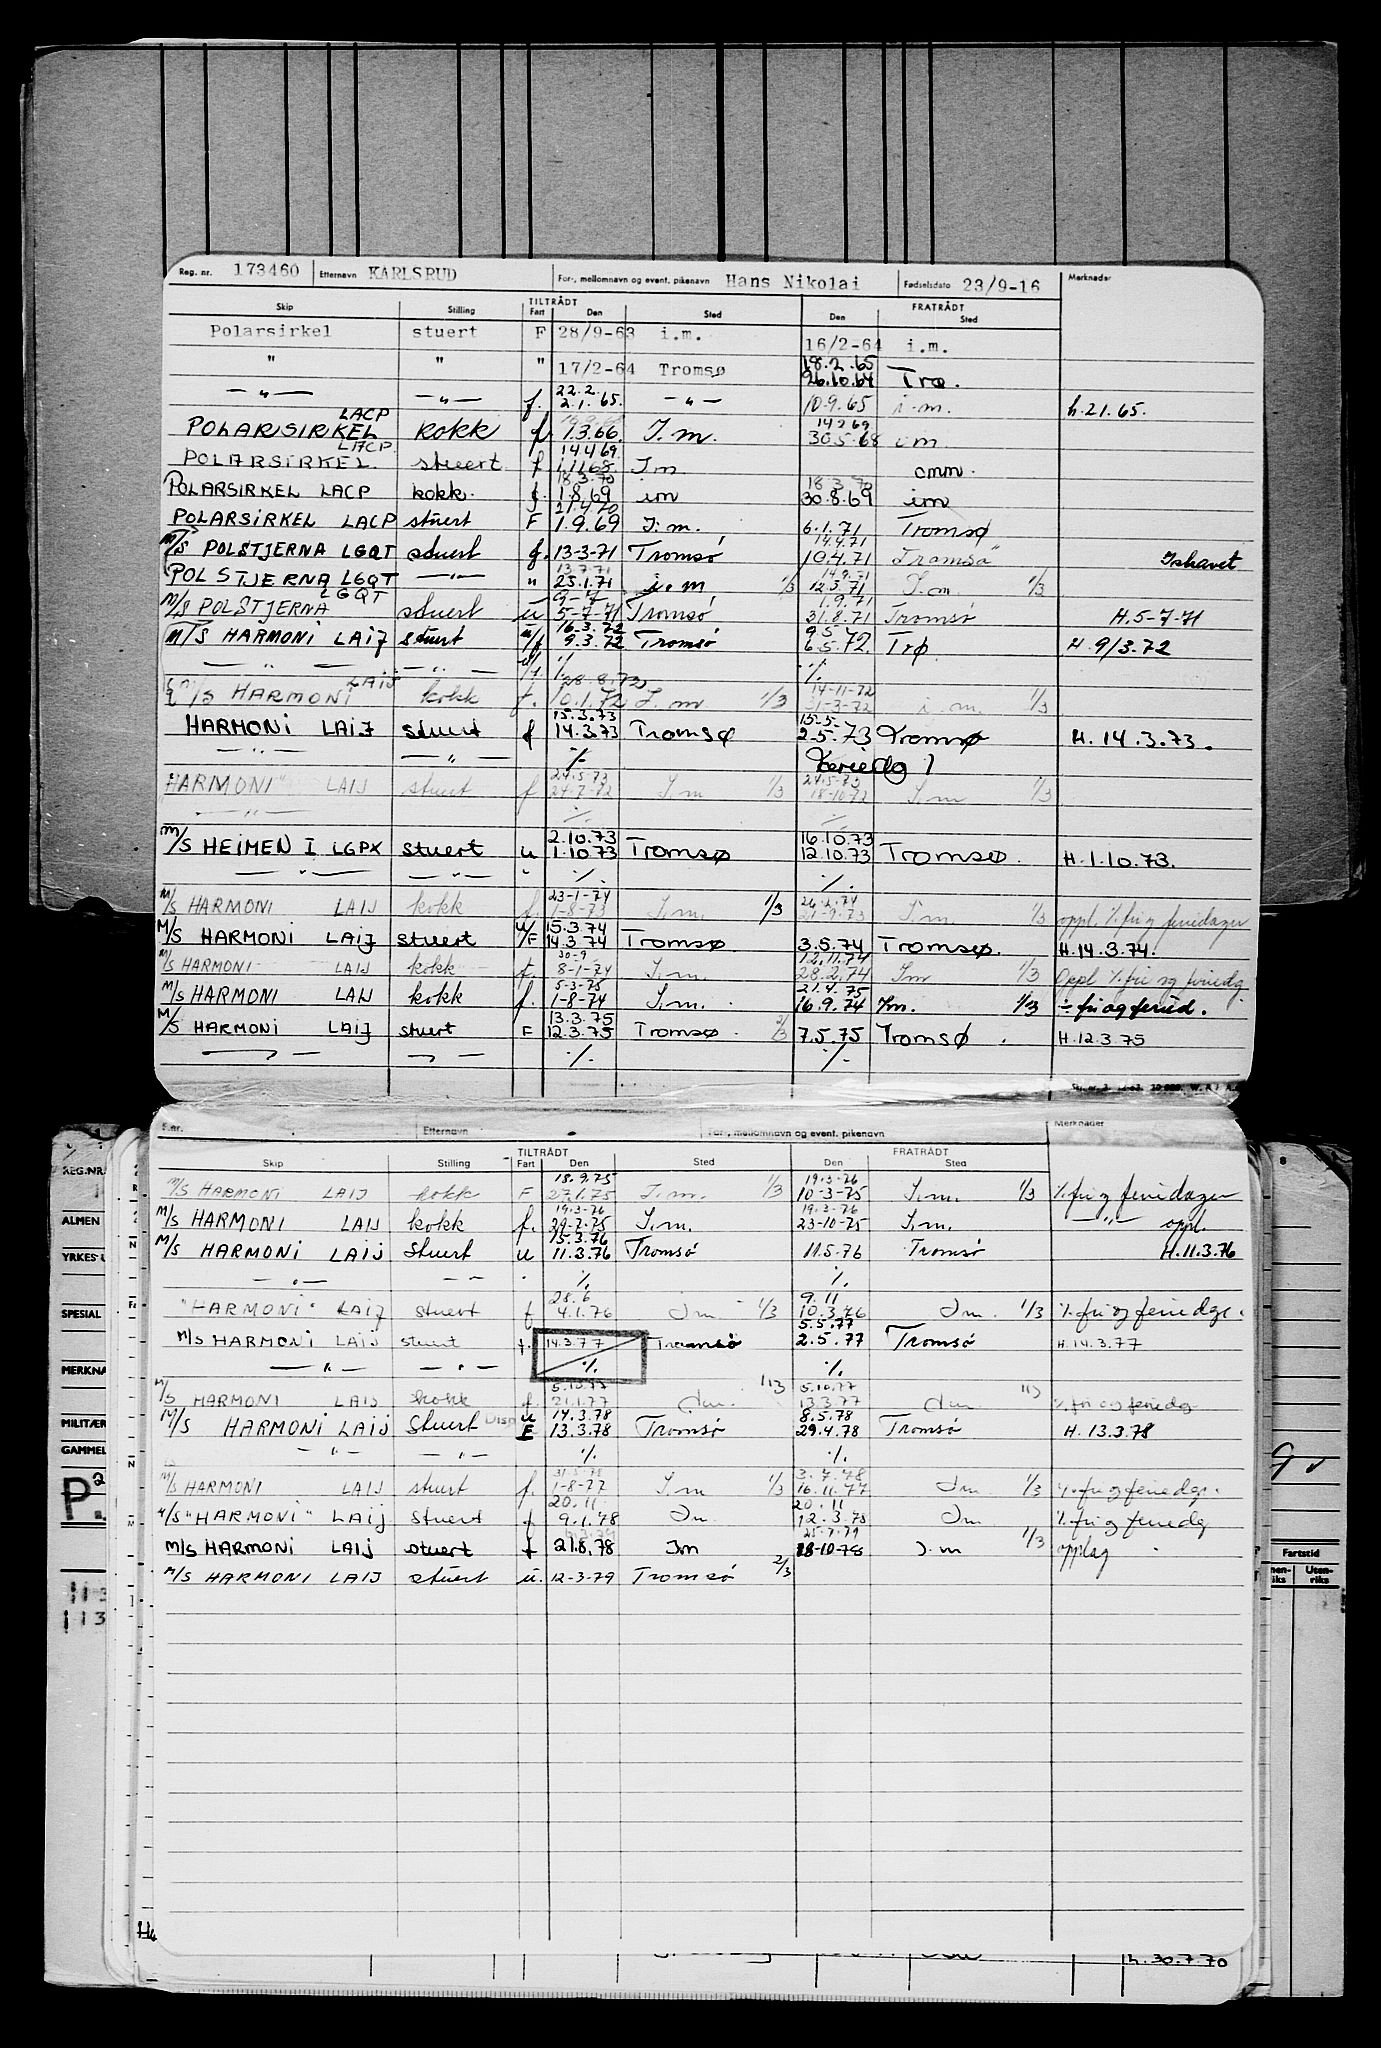 Reg. nr. 173460 Etternavn KARLSRUD For-, mellomnavn og event. pikenavn Hans Nikolai Fødselsdato 23/9-16 Merknader
TILTRÅDT FRATRÅDT
Skip Stilling Fart Den Sted Den Sted
Polarsirkel stuert F 28/9-63 i.m. 16/2-64 i.m.
" " " 17/2-64 Tromsø 18.2.65 26.10.64 Trø.
— " — — " — f. 22.2. 2.1.65. — " — 10.9.65 i.m. h.21.65.
POLARSIRKEL LACP kokk f. 1.3.66. I.m. 14 2 69 30.5.68 im
POLARSIRKEL LACP stuert f 14 4 69. 1.11.68. Im omm.
POLARSIRKEL LACP kokk. f. 18 3.70 1.8.69 im 18 3 70 30.8.69 im
POLARSIRKEL LACP stuert F 21.4.70 1.9.69 I.m. 6.1.71 Tromsø
M/S POLSTJERNA LGQT stuert f. 13-3-71 Tromsø 14.4.71 10.4.71 Tromsø Ishavet
POLSTJERNA LGQT — " — " 13 7 71 23.1.71 i.m 1/3 14.9.71 12.3.71 I.m. 1/3
M/S POLSTJERNA LGQT stuert u 9-7 5-7-71 Tromsø 1.9.71 31.8.71 Tromsø H.5-7-71
M/S HARMONI LAIJ stuert u/f 16.3.72 9.3.72 Tromsø 9 5 6.5.72. Trø. H 9/3.72
— " — — " — ./. ./.
M/S HARMONI LAIJ kokk f. 28.8.73 10.1.72 I.m 1/3 14-11-72 31-3-72 i.m. 1/3
HARMONI LAIJ stuert f 15.3.73 14.3.73 Tromsø 15-5- 2.5.73 Tromsø H.14.3.73.
— " — — " — ./.
"HARMONI" LAIJ stuert f 24.5.73 24-7-72 I.m 1/3 24.5-73 18-10-72 I.m 1/3
— " — ./. ./.
M/S HEIMEN I LGPX stuert u 2.10.73 1.10 73 Tromsø 16.10.73 12.10.73 Tromsø. H.1.10.73.
— " — — " — " ./. ./.
M/S HARMONI LAIJ kokk f. 23-1-74 1-8-73 I.m. 1/3 26.2.74 21-9-73 I.m. 1/3 oppl. ./. fri og feriedager
M/S HARMONI LAIJ stuert u/F 15.3.74 14.3 74 Tromsø 3.5.74 Tromsø. H.14.3.74.
M/S HARMONI LAIJ kokk f. 30-9 8-1-74 I.m. 12.11.74 28.2.74 Im 1/3 Oppl ./. fri og feriedg
M/S HARMONI LAIJ kokk f. 5-3-75 1-8-74 I.m. 21.4.75 16.9.74 Im. 1/3 ÷ fri og feried.
M/S HARMONI LAIJ stuert F 13.3.75 12.3.75 Tromsø. 2/3 7.5.75 Tromsø. H.12.3.75
— " — — " — ./. ./.
Etternavn For-, mellomnavn og event. pikenavn Merknader
TILTRÅDT FRATRÅDT
Skip Stilling Fart Den Sted Den Sted
M/S HARMONI LAIJ kokk F 18.9.75 27.1.75 I.m. 1/3 19.3-76 10-3-75 I.m. 1/3 ./. fri og feriedager
M/S HARMONI LAIJ kokk f. 19.3-76 29-7-75 I.m. 19.3-76 23-10-75 I.m. — " — oppl.
M/S HARMONI LAIJ Stuert u 15.3.76 11.3.76 Tromsø 11.5.76 Tromsø H.11.3.76
— " — — " — ./. ./.
"HARMONI" LAIJ stuert f 28.6 4.1.76 Im 1/3 9.11 10.3.76 Im 1/3 ./. fri og feriedge.
M/S HARMONI LAIJ stuert f. 14.3.77 Tromsø 5.5.77 2.5.77 Tromsø H.14.3.77
— " — — " — ./. ./.
M/S HARMONI LAIJ kokk f 5.10.77 21.1.77 Im. 1/3 5.10.77 13.3.77 Im 1/3 ./. fri og feriedg
M/S HARMONI LAIJ Stuert Disp u F 14.3.78 13.3.78 Tromsø 8.5.78 29.4.78 Tromsø H. 13.3.78
— " — — " — ./. ./.
M/S HARMONI LAIJ stuert f. 1-8-77 I.m 1/3 3.7.78 16.11.77 Im 1/3 ./. fri og feriedge.
M/S "HARMONI" LAIJ stuert f 20.11 9.1.78 Im. 20.11 12.3.78 Im ./. fri og feriedg
M/S HARMONI LAIJ stuert f 21.8.78 Im 25-7-79 18-10-78 I.m 1/3 opplag
M/S HARMONI LAIJ stuert u. 12-3-79 Tromsø 2/3
REG.NR.
ALMEN
YRKES U
SPESIAL
MERKNA
MILITÆR
GAMMEL
Fartstid
Uten-
riks
h.30.7.70